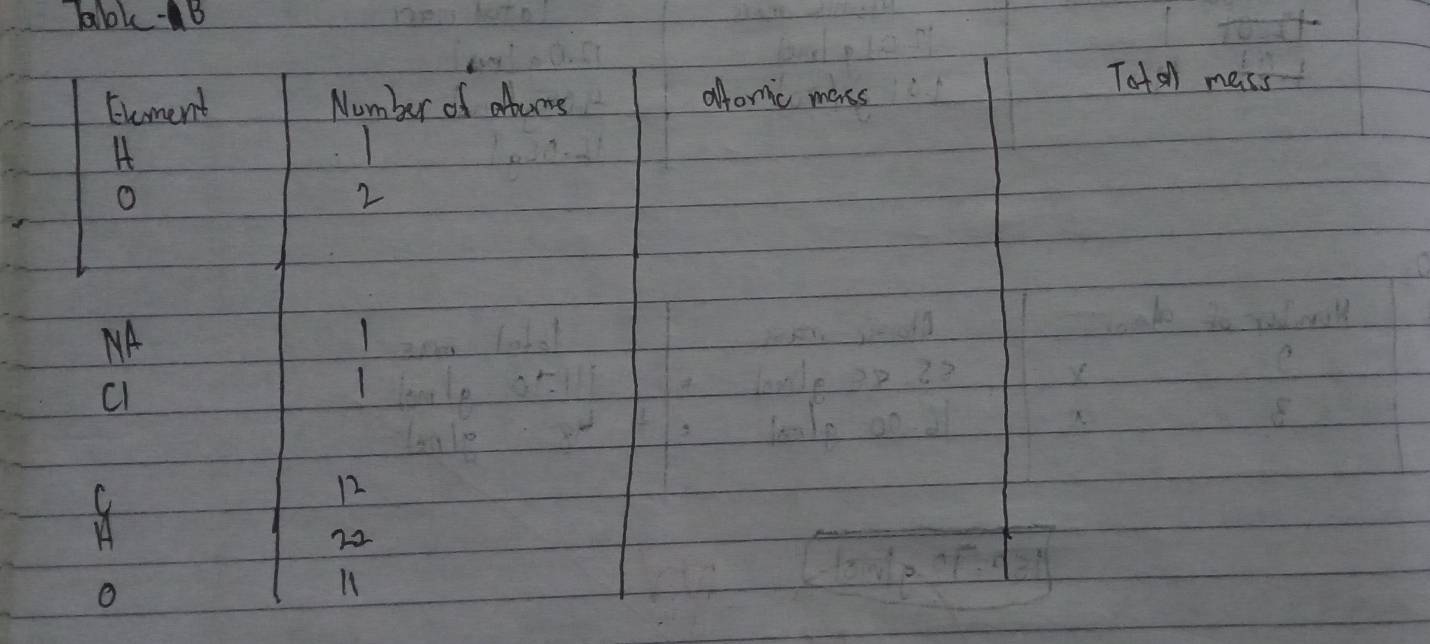 Table - B
Element Number of atoms atomic mass Total mass
H 1
O 2
NA 1
Cl 1
C 12
H 22
O 11